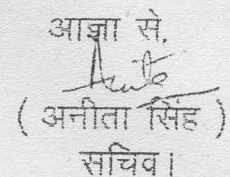 आज्ञा से,
( अनीता सिंह )
सचिव।